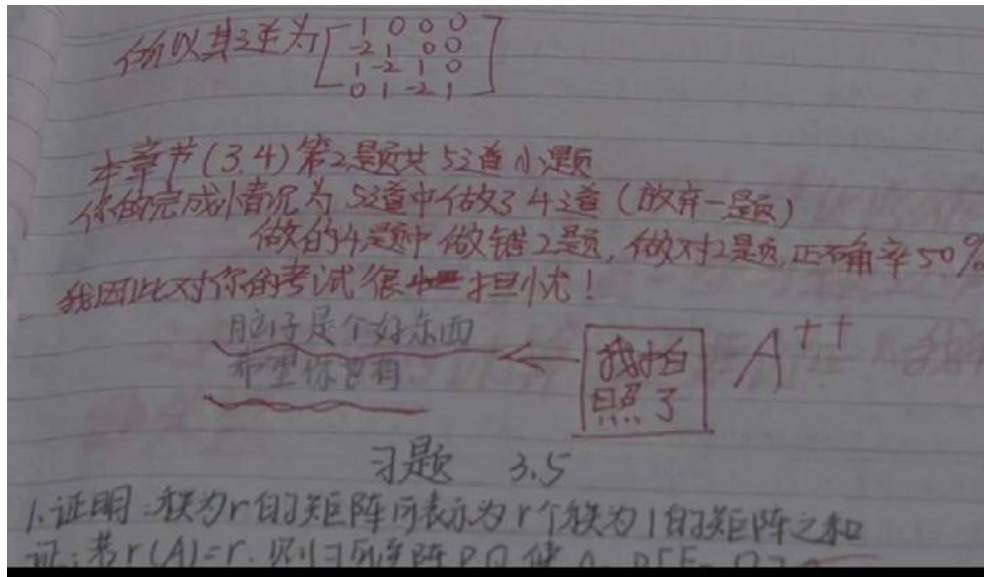 所以其逆为 1 0 0 0
-2 1 0 0
1 -2 1 0
0 1 -2 1
本章节(3.4)第2题共5道小题
你的完成情况为 5道中做了4道(放弃一题)
做的4题中做错2题,做对2题,正确率50%
我因此对你的考试很担忧!
脑子是个好东西
希望你也有
我拍
照了
A++
习题 3.5
1.证明:秩为r的矩阵可表示为r个秩为1的矩阵之和
证:若r(A)=r.则